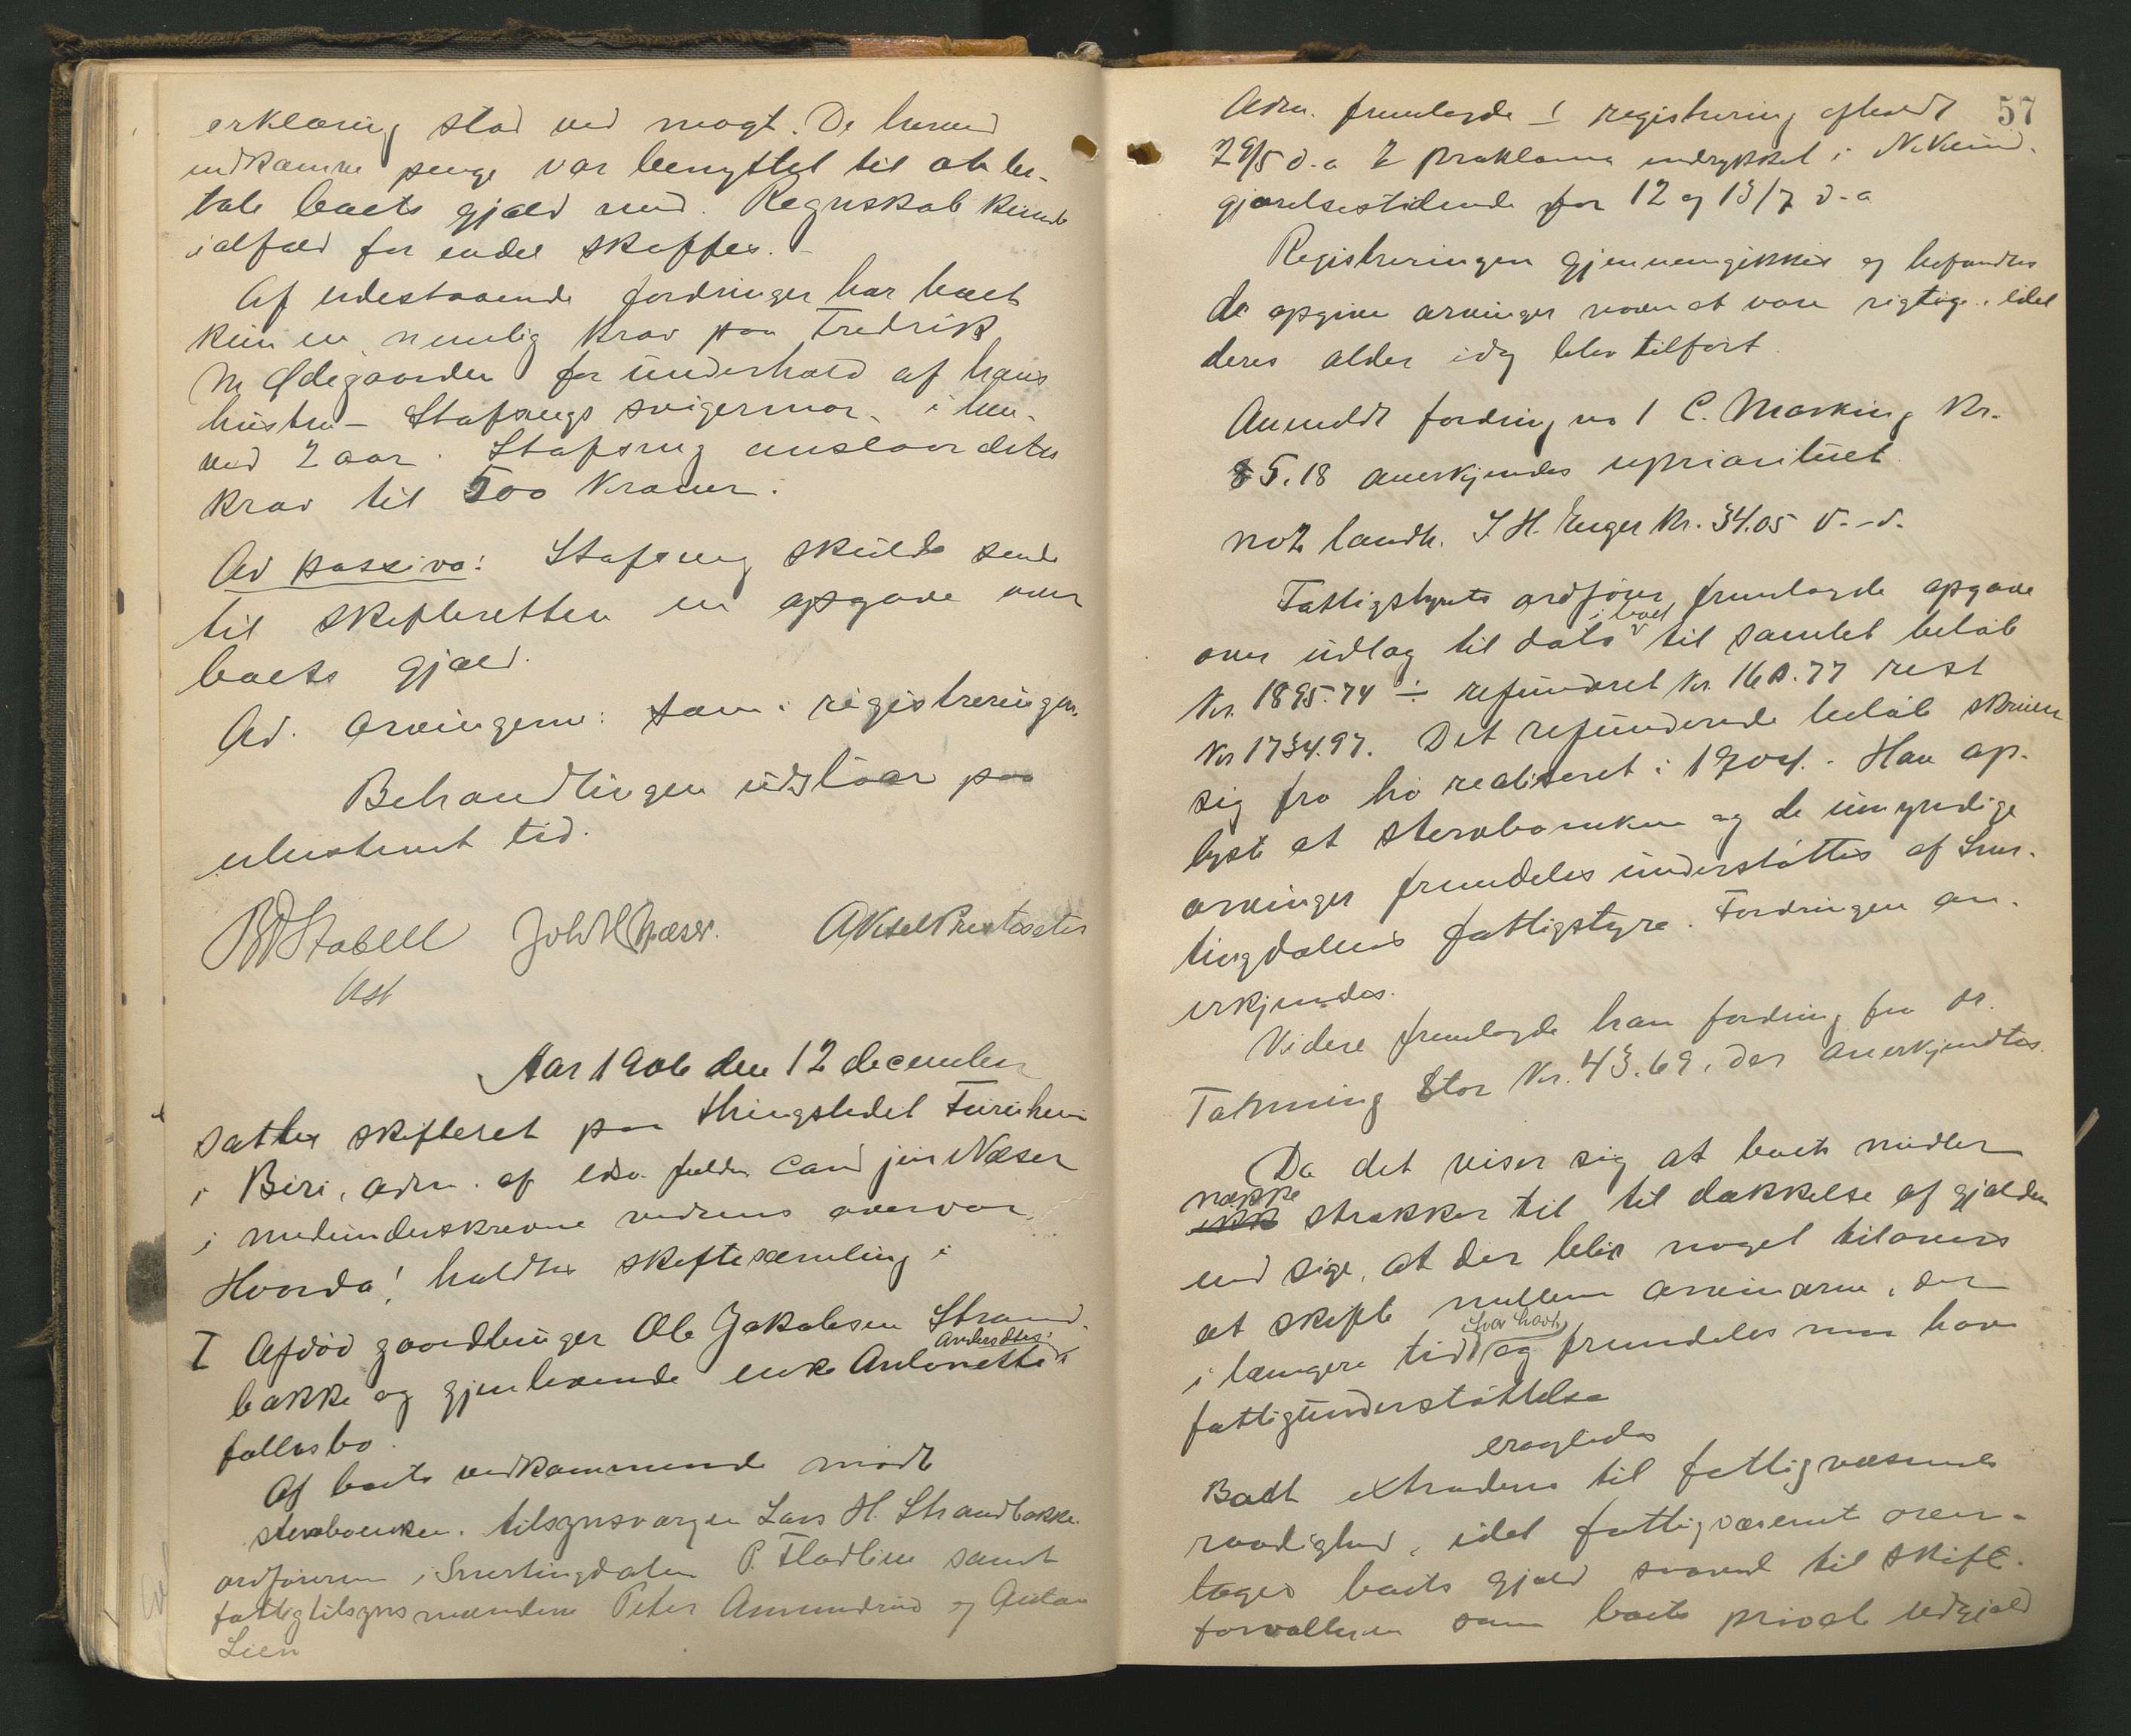 erklæring stod ved magt. De herved
indkomne penge var benyttet til at be-
tale boets gjæld med. Regnskab kunde
ialfald for endel skaffes.
Af udestaaende fordringer har boet
kun en, nemlig krav paa Fredrik
M Ødegaarden for underhold af hans
hustru - Stafsengs svigermor - i hen-
ved 2 aar. Stafseng anslaar dette
krav til 500 Kroner.
Ad passiva: Stafseng skulde sende
til skifteretten en opgave over
boets gjæld.
Ad. arvingerne: som i registreringen.
Behandlingen udstaar paa
ubestemt tid.
Stabell
Ast
Aar 1906 den 12 december
sattes skifteret paa thingstedet Furuheim
i Biri, adm. af edsv. fuldm. cand jur Næser
i medunderskrevne vidners overvær.
Hvorda! holdtes skiftesamling i
I Afdød gaardbruger Ole Jakobsen Strand-
Andersdtrs.
bakke og gjenlevende enke Antonette
fællesbo.
Af boets vedkommende mødte
stervboenken, tilsynsværgen Lars H. Strandbakke.
ordføreren i Snertingdalen P. Fladlien samt
fattigtilsynsmændene Peter Amundrud og Anton
Lien
57
Adm. fremlagde 1 registrering afholdt
29/5 d.a 2 proklama indrykket i N. Kund-
gjørelsestidende for 12 og 13/7 d.a
Registreringen gjennemgikkes og befandtes
de opgivne arvinger navne at være rigtige, idet
deres alder idag blev tilført.
Anmeldt fordring no 1 C. Marking Kr.
85.18 anerkjendes uprioritert
no 2 landh. I. H. Enger Kr. 34.05 d.-d.
Fattigstyrets ordfører fremlagde opgave
i boet
over udlæg til dato til samlet beløb
Kr. 1895.74 ÷ refunderet Kr. 160.77 rest
Kr 1734.97. Det refunderede beløb skriver
sig fra hø realiseret i 1904. Han op-
lyste at stervboenken og de umyndige
arvinger fremdeles understøttes af Sner-
tingdalens fattigstyre. Fordringen an-
erkjendes.
Videre fremlagde han fordring fra dr.
Tanning stor Kr. 43.69, der anerkjendtes.
Da det viser sig at boets midler
næppe
ikke strækker til til dækkelse af gjælden
end sige, at der blir noget tilovers
at skifte mellem arvingerne, der
i har havt
i længere tid og fremdeles maa have
fattigunderstøttelse
eragtedes
Boet extraderes til fattigvæsenets
raadighed, idet fattigvæsenet over-
tager boets gjæld svarend til skift-
forvalteren som boets private udgjæld